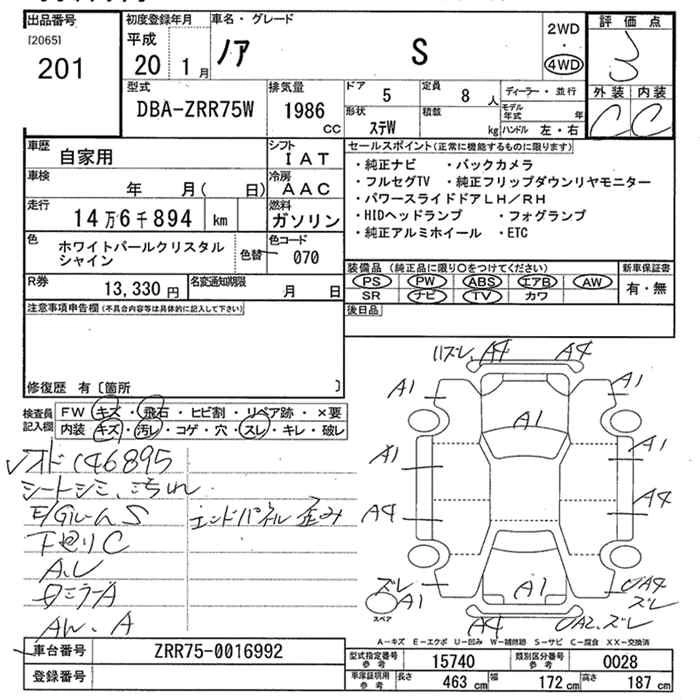 出品番号 初度登録年月 車名・グレード 2WD 評価点
[2065] 平成 ・
201 20 1月 ノア S 4WD 3
型式 排気量 ドア 5 定員 8人 ディーラー・並行 外装 内装
DBA-ZRR75W 1986 cc 形状 ステW 積載 kg モデル年式 年 C C
ハンドル 左・右
車歴 自家用 シフト IAT セールスポイント(正常に機能するものに限ります)
車検 年 月( 日) 冷房 AAC ・純正ナビ ・バックカメラ
・フルセグTV ・純正フリップダウンリヤモニター
走行 14万6千894 km 燃料 ガソリン ・パワースライドドアLH/RH
・HIDヘッドランプ ・フォグランプ
色 ホワイトパールクリスタルシャイン 色替 色コード 070 ・純正アルミホイール ・ETC
R券 13,330円 名変通知期限 月 日 装備品(純正品に限り○をつけてください) 新車保証書
PS PW ABS エアB AW 有・無
SR ナビ TV カワ
注意事項申告欄(不具合内容等は具体的に記入して下さい) 後日品
修復歴 有〔箇所 〕
検査員記入欄 FW キズ・飛石・ヒビ割・リペア跡・×要
内装 キズ・汚レ・コゲ・穴・スレ・キレ・破レ
ズレ、A4 A4
A1 A1
A1
A1 A1
A4 A4
ズレ A1 A1 UA4 ズレ
スペア
A4 UA2、ズレ
146895
シートシミ、汚れ
E/GルームS エンドパネル歪み
下廻りC
A,U
ロミラーA
AW、A
A-キズ E-エクボ U-凹み W-補修跡 S-サビ C-腐食 XX-交換済
車台番号 ZRR75-0016992
登録番号
型式指定番号 参考 15740 類別区分番号 参考 0028
車庫証明用 参考 長さ 463cm 幅 172cm 高さ 187cm